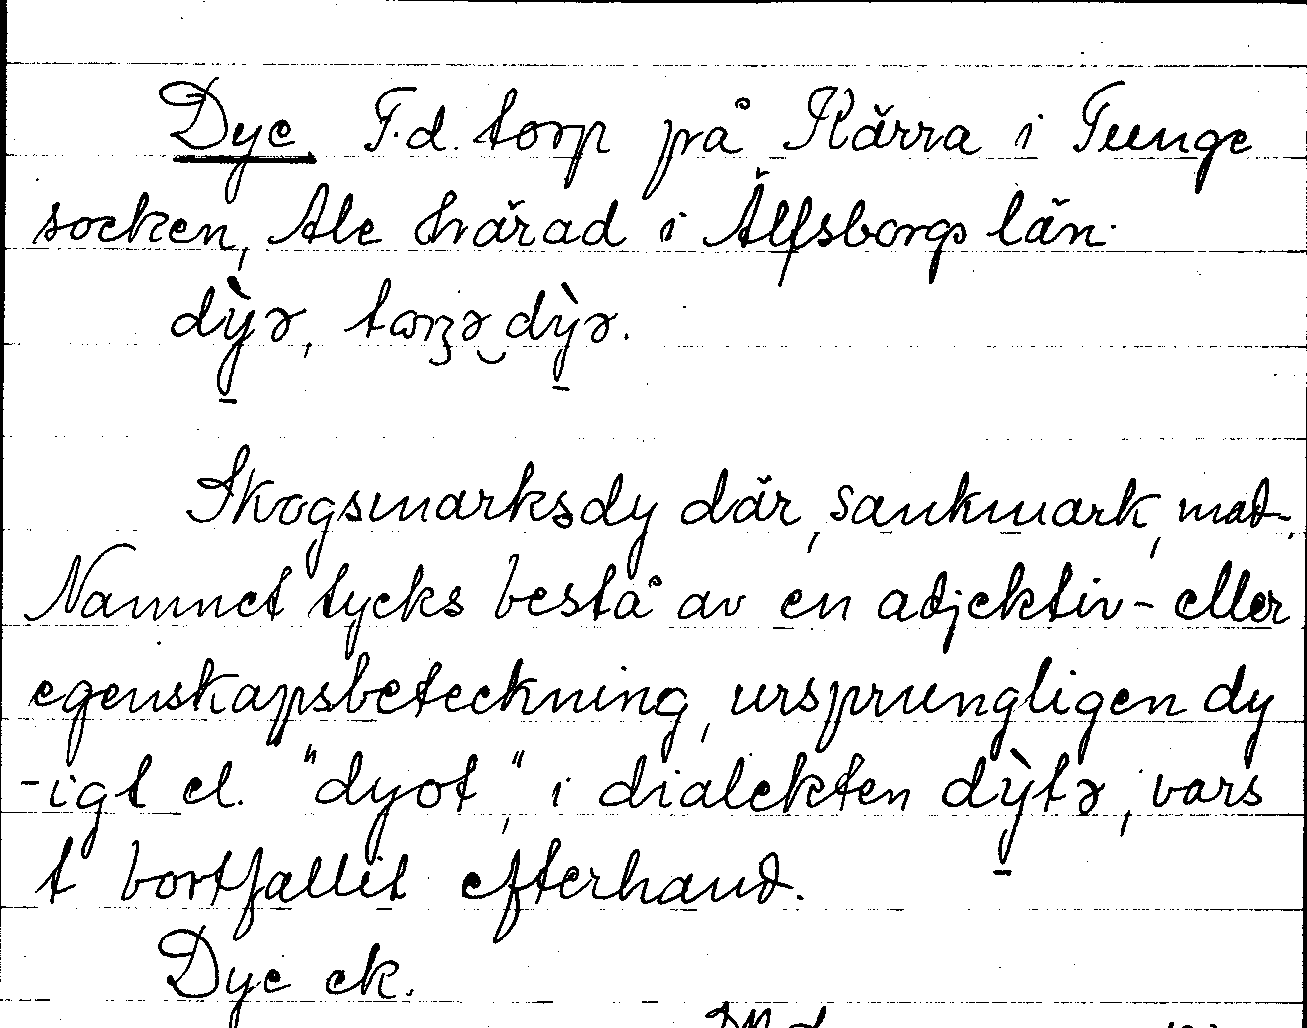 Dye F.d. torp på Kärra i Tunge
socken, Ale härad i Älfsborgs län.
dỳə, torpə dỳə.
Skogsmarksdy där, sankmark, mad.
Namnet tycks bestå av en adjektiv- eller
egenskapsbeteckning, ursprungligen dy
-igt el. "dyot," i dialekten dỳtə, vars
t bortfallit efterhand.
Dye ek.